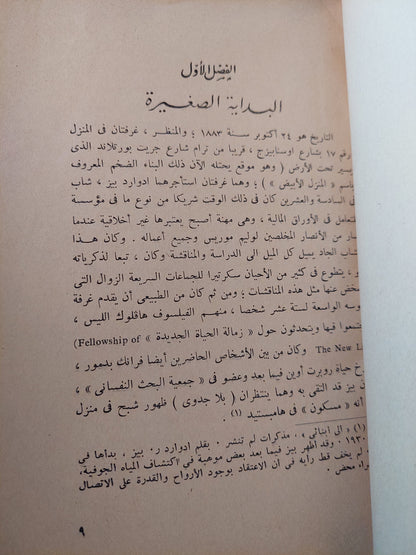 الفصل الأول
البداية الصغيرة
التاريخ هو ٢٤ أكتوبر سنة ١٨٨٣ ؛ والمنظر ، غرفتان فى المنزل
رقم ١٧ بشارع اوسنابيرج ، قريبا من ترام شارع جريت بورتلاند الذى
يسير تحت الأرض ( وهو موقع يحتله الآن ذلك البناء الضخم المعروف
باسم « المنزل الأبيض » ) ؛ وهما غرفتان استأجرهما ادوارد بيز ، شاب
فى السادسة والعشرين كان فى ذلك الوقت شريكا من نوع ما فى مؤسسة
للتعامل فى الأوراق المالية ، وهى مهنة أصبح يعتبرها غير أخلاقية عندما
صار من الأنصار المخلصين لوليم موريس وجميع أعماله . وكان هذا
الشاب الجاد يميل كل الميل الى الدراسة والمناقشة وكان ، تبعا لذكرياته
، يتطوع فى كثير من الأحيان سكرتيرا للجماعات السريعة الزوال التى
تتمخض عنها مثل هذه المناقشات ؛ ومن ثم كان من الطبيعى أن يقدم غرفة
جلوسه الواسعة لستة عشر شخصا ، منهم الفيلسوف هافلوك الليس ،
ليجتمعوا فيها ويتحدثون حول « زمالة الحياة الجديدة » (Fellowship of
The New وكان من بين الأشخاص الحاضرين أيضا فرانك بدمور ،
مؤرخ حياة روبرت أوين فيما بعد وعضو فى « جمعية البحث النفسانى » ،
بيز قد التقى به وهما ينتظران ( بلا جدوى ) ظهور شبح فى منزل
أنه « مسكون » فى هامبستيد (١) .
(١) « الى ابنائى » ، مذكرات لم تنشر . بقلم ادوارد ر. بيز ، بداها فى
١٩٣٠ . وقد أظهر بيز فيما بعد بعض موهبة فى اكتشاف المياه الجوفية،
لم يخف قط رأيه فى أن الاعتقاد بوجود الأرواح والقدرة على الاتصال
محض .
٩